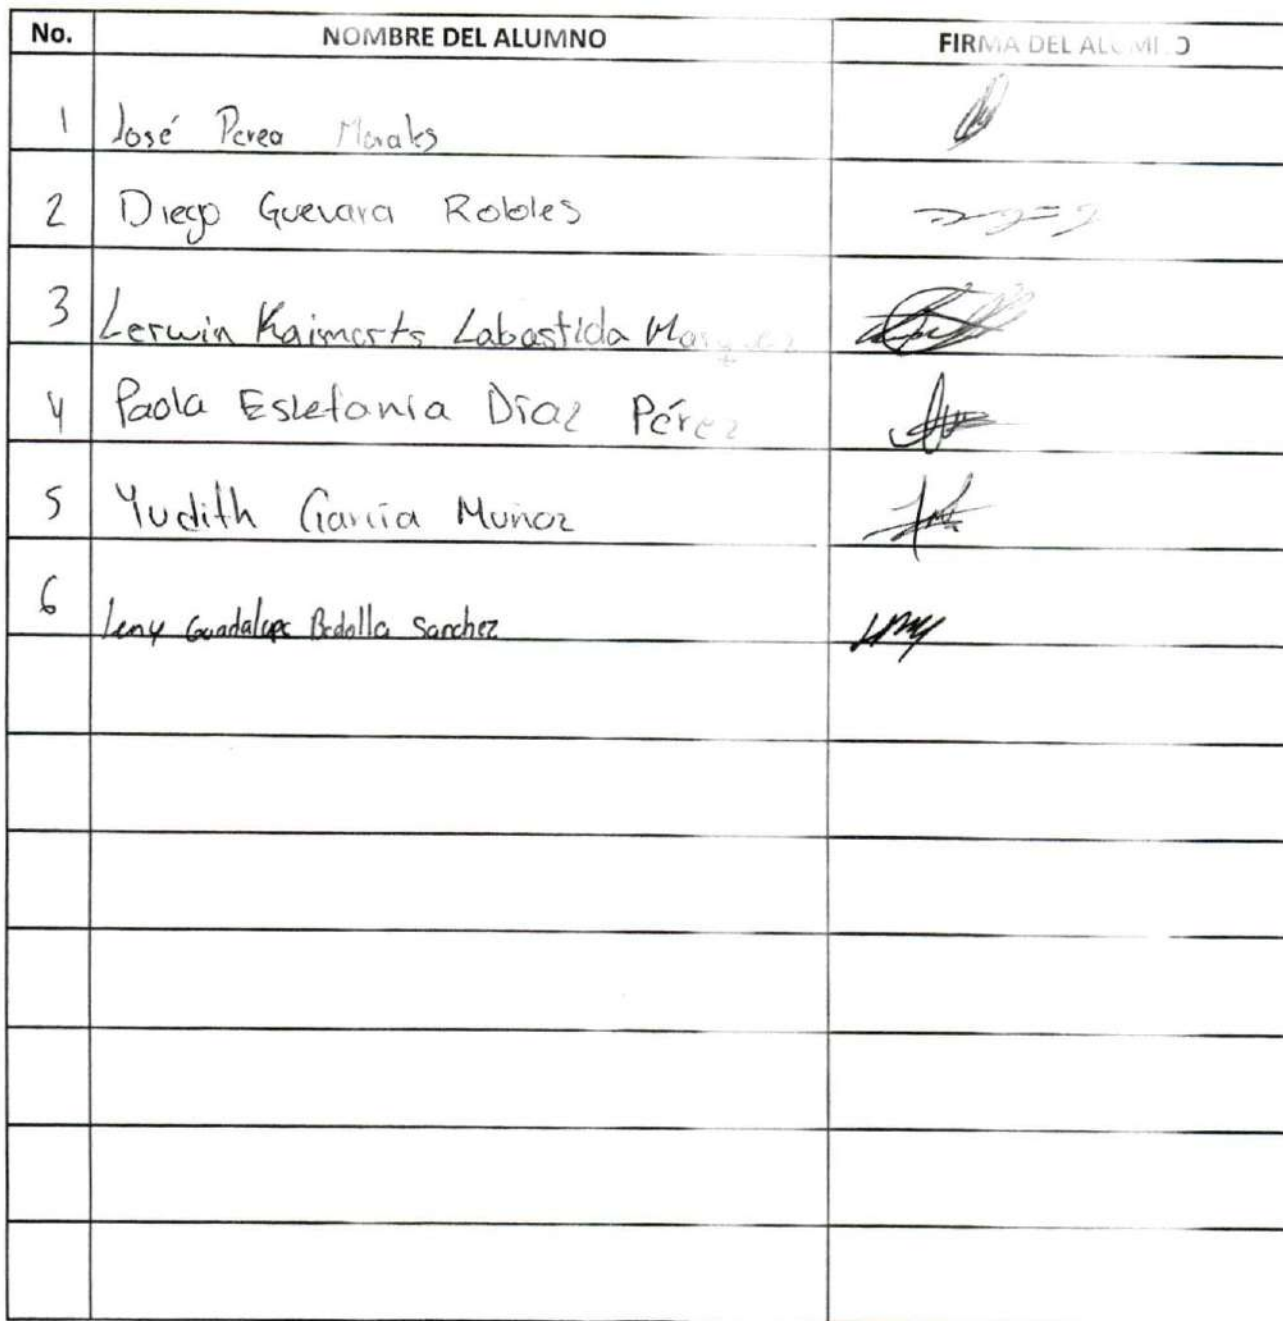 No. NOMBRE DEL ALUMNO FIRMA DEL ALUMNO
1 José Perea Morales
2 Diego Guevara Robles
3 Lerwin Kaimorts Labastida Marquez
4 Paola Estefanía Díaz Pérez
5 Yudith García Muñoz
6 Leny Guadalupe Bedolla Sanchez